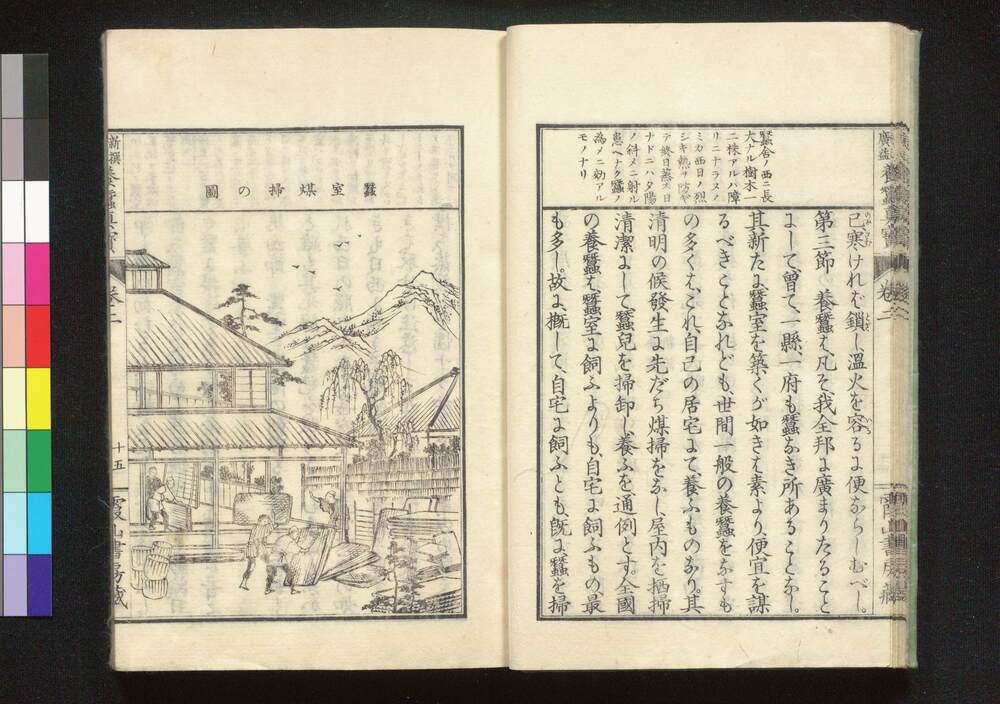 蠶舍ノ西ニ長
大ナル樹木一
二株アルハ障
リニナラスノ
ミカ西日ノ烈
シキ熱ヲ防ヤ
テ終日蒸ス日
ナドニハ夕陽
ノ斜メニ射ル
患ヘナク蠶ノ
為メニ効アル
モノナリ
己、寒けれむ鎖し溫火を容るに便ならしむべし。
第三節 養蠶は、凡そ我全邦に廣まりたること
にして、曾て、一縣、一府も蠶なき所あることなし。
其新たに蠶室を築くが如きは素より、便宜を謀
るべきことなれども、世間一般の養蠶をなすも
の多くは、これ、自己の居宅にて養ふものなり。其
清明の候發生に先だち煤掃をなし、屋内を洒掃
清潔にして蠶兒を掃卸し、養ふを通例とす。全國
の養蠶は、蠶室に飼ふよりも、自宅に飼ふもの、最
も多し。故に、概して、自宅に飼ふとも、既に蠶を掃
蠶室煤掃の圖
新撰養蠶眞寳
卷二
十五
霞山書房藏